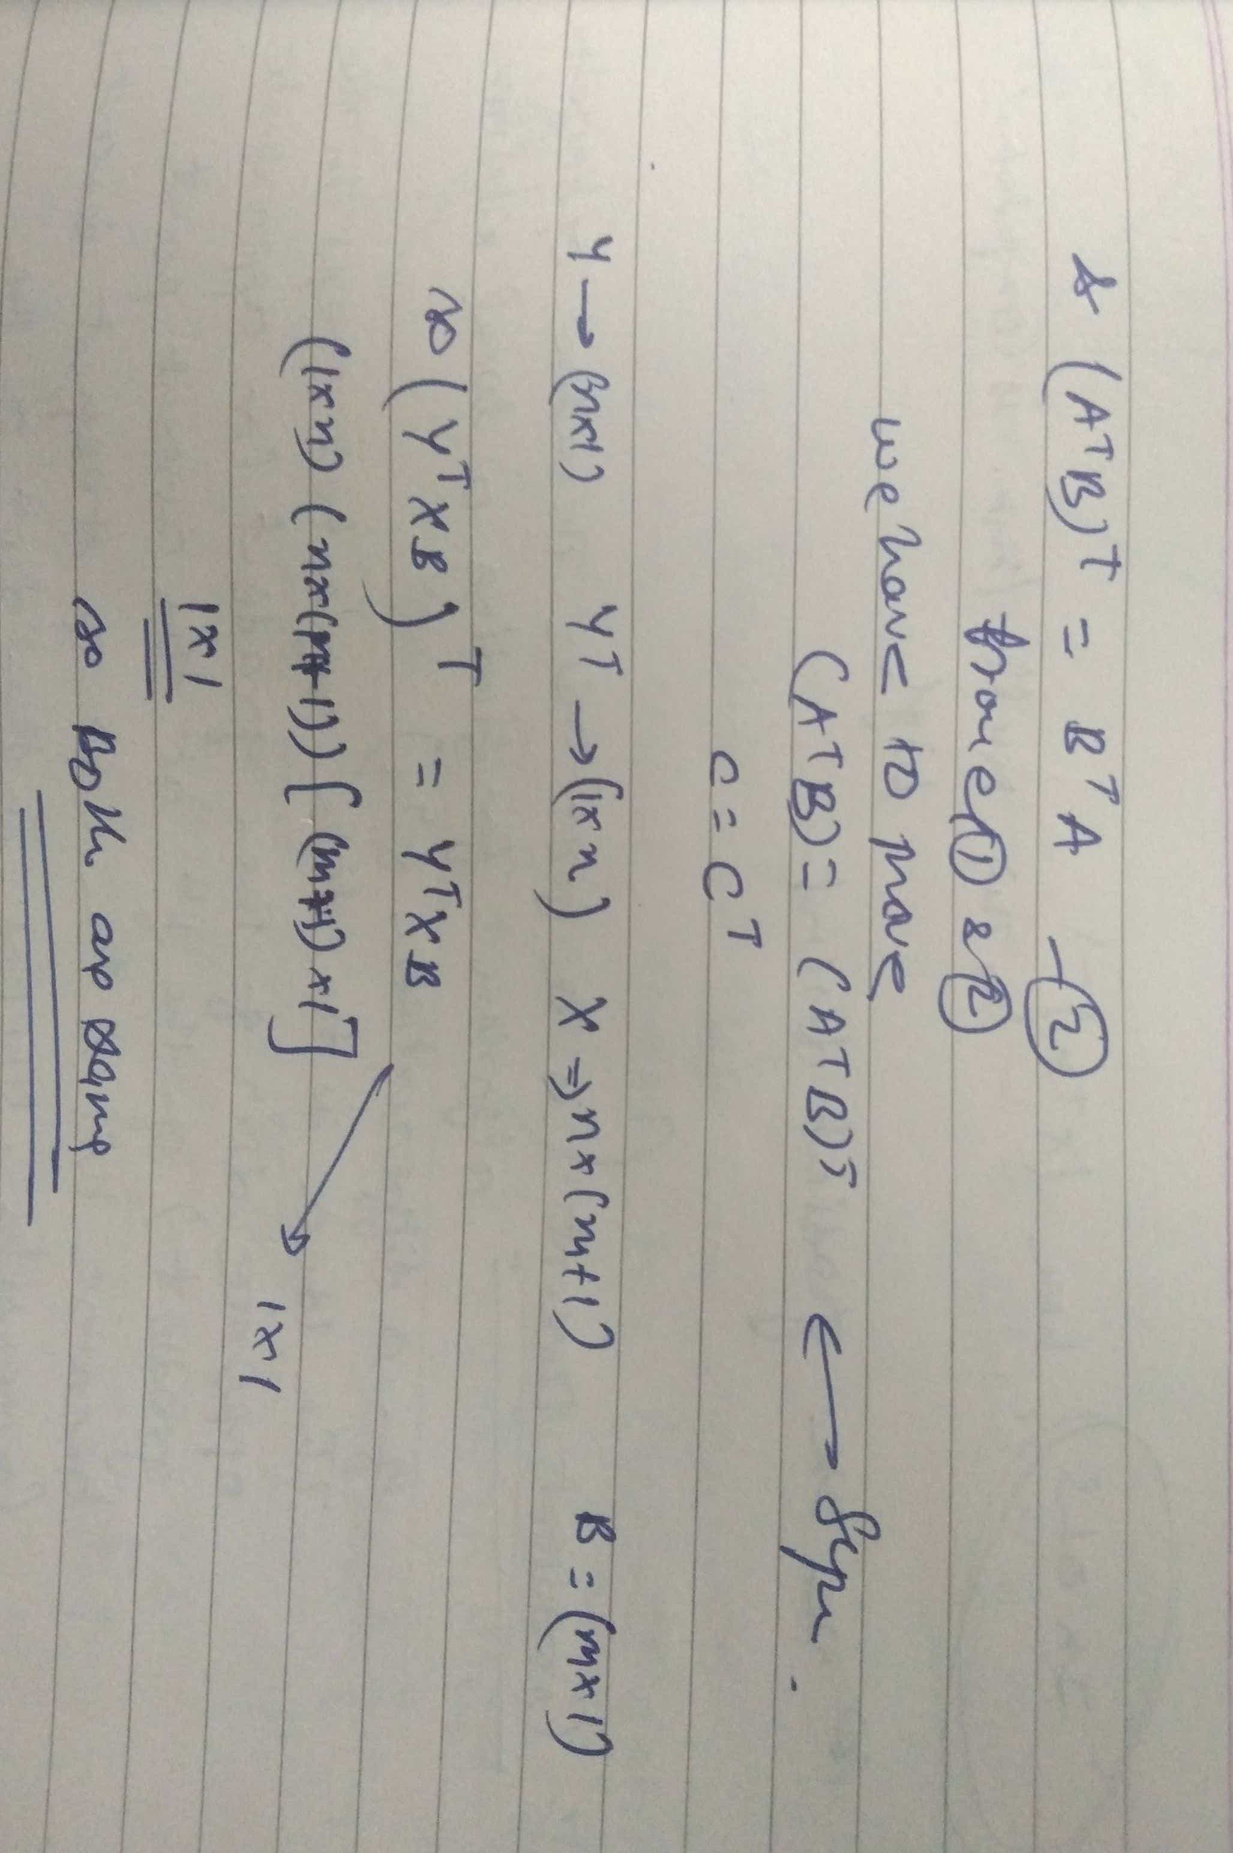 & (AᵀB)ᵀ = BᵀA —②
from ① & ②
we have to prove
(AᵀB) = (AᵀB)ᵀ ← Sym.
C = Cᵀ
Y → (n×1) Yᵀ → (1×n) X ⇒ n×(m+1) B = (m×1)
so (YᵀXB)ᵀ = YᵀXB
(1×n) (n×(m+1)) [(m+1)×1] 1×1
1×1
so Both are same